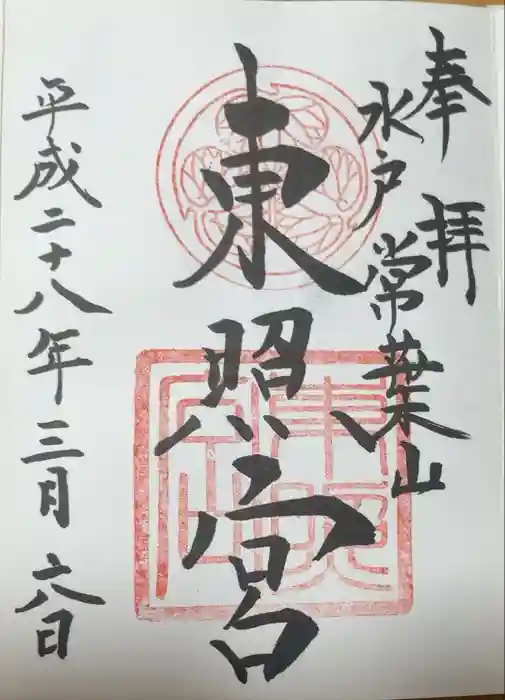 奉拝
水戸 常葉山
東照宮
平成二十八年三月六日
東照
宮